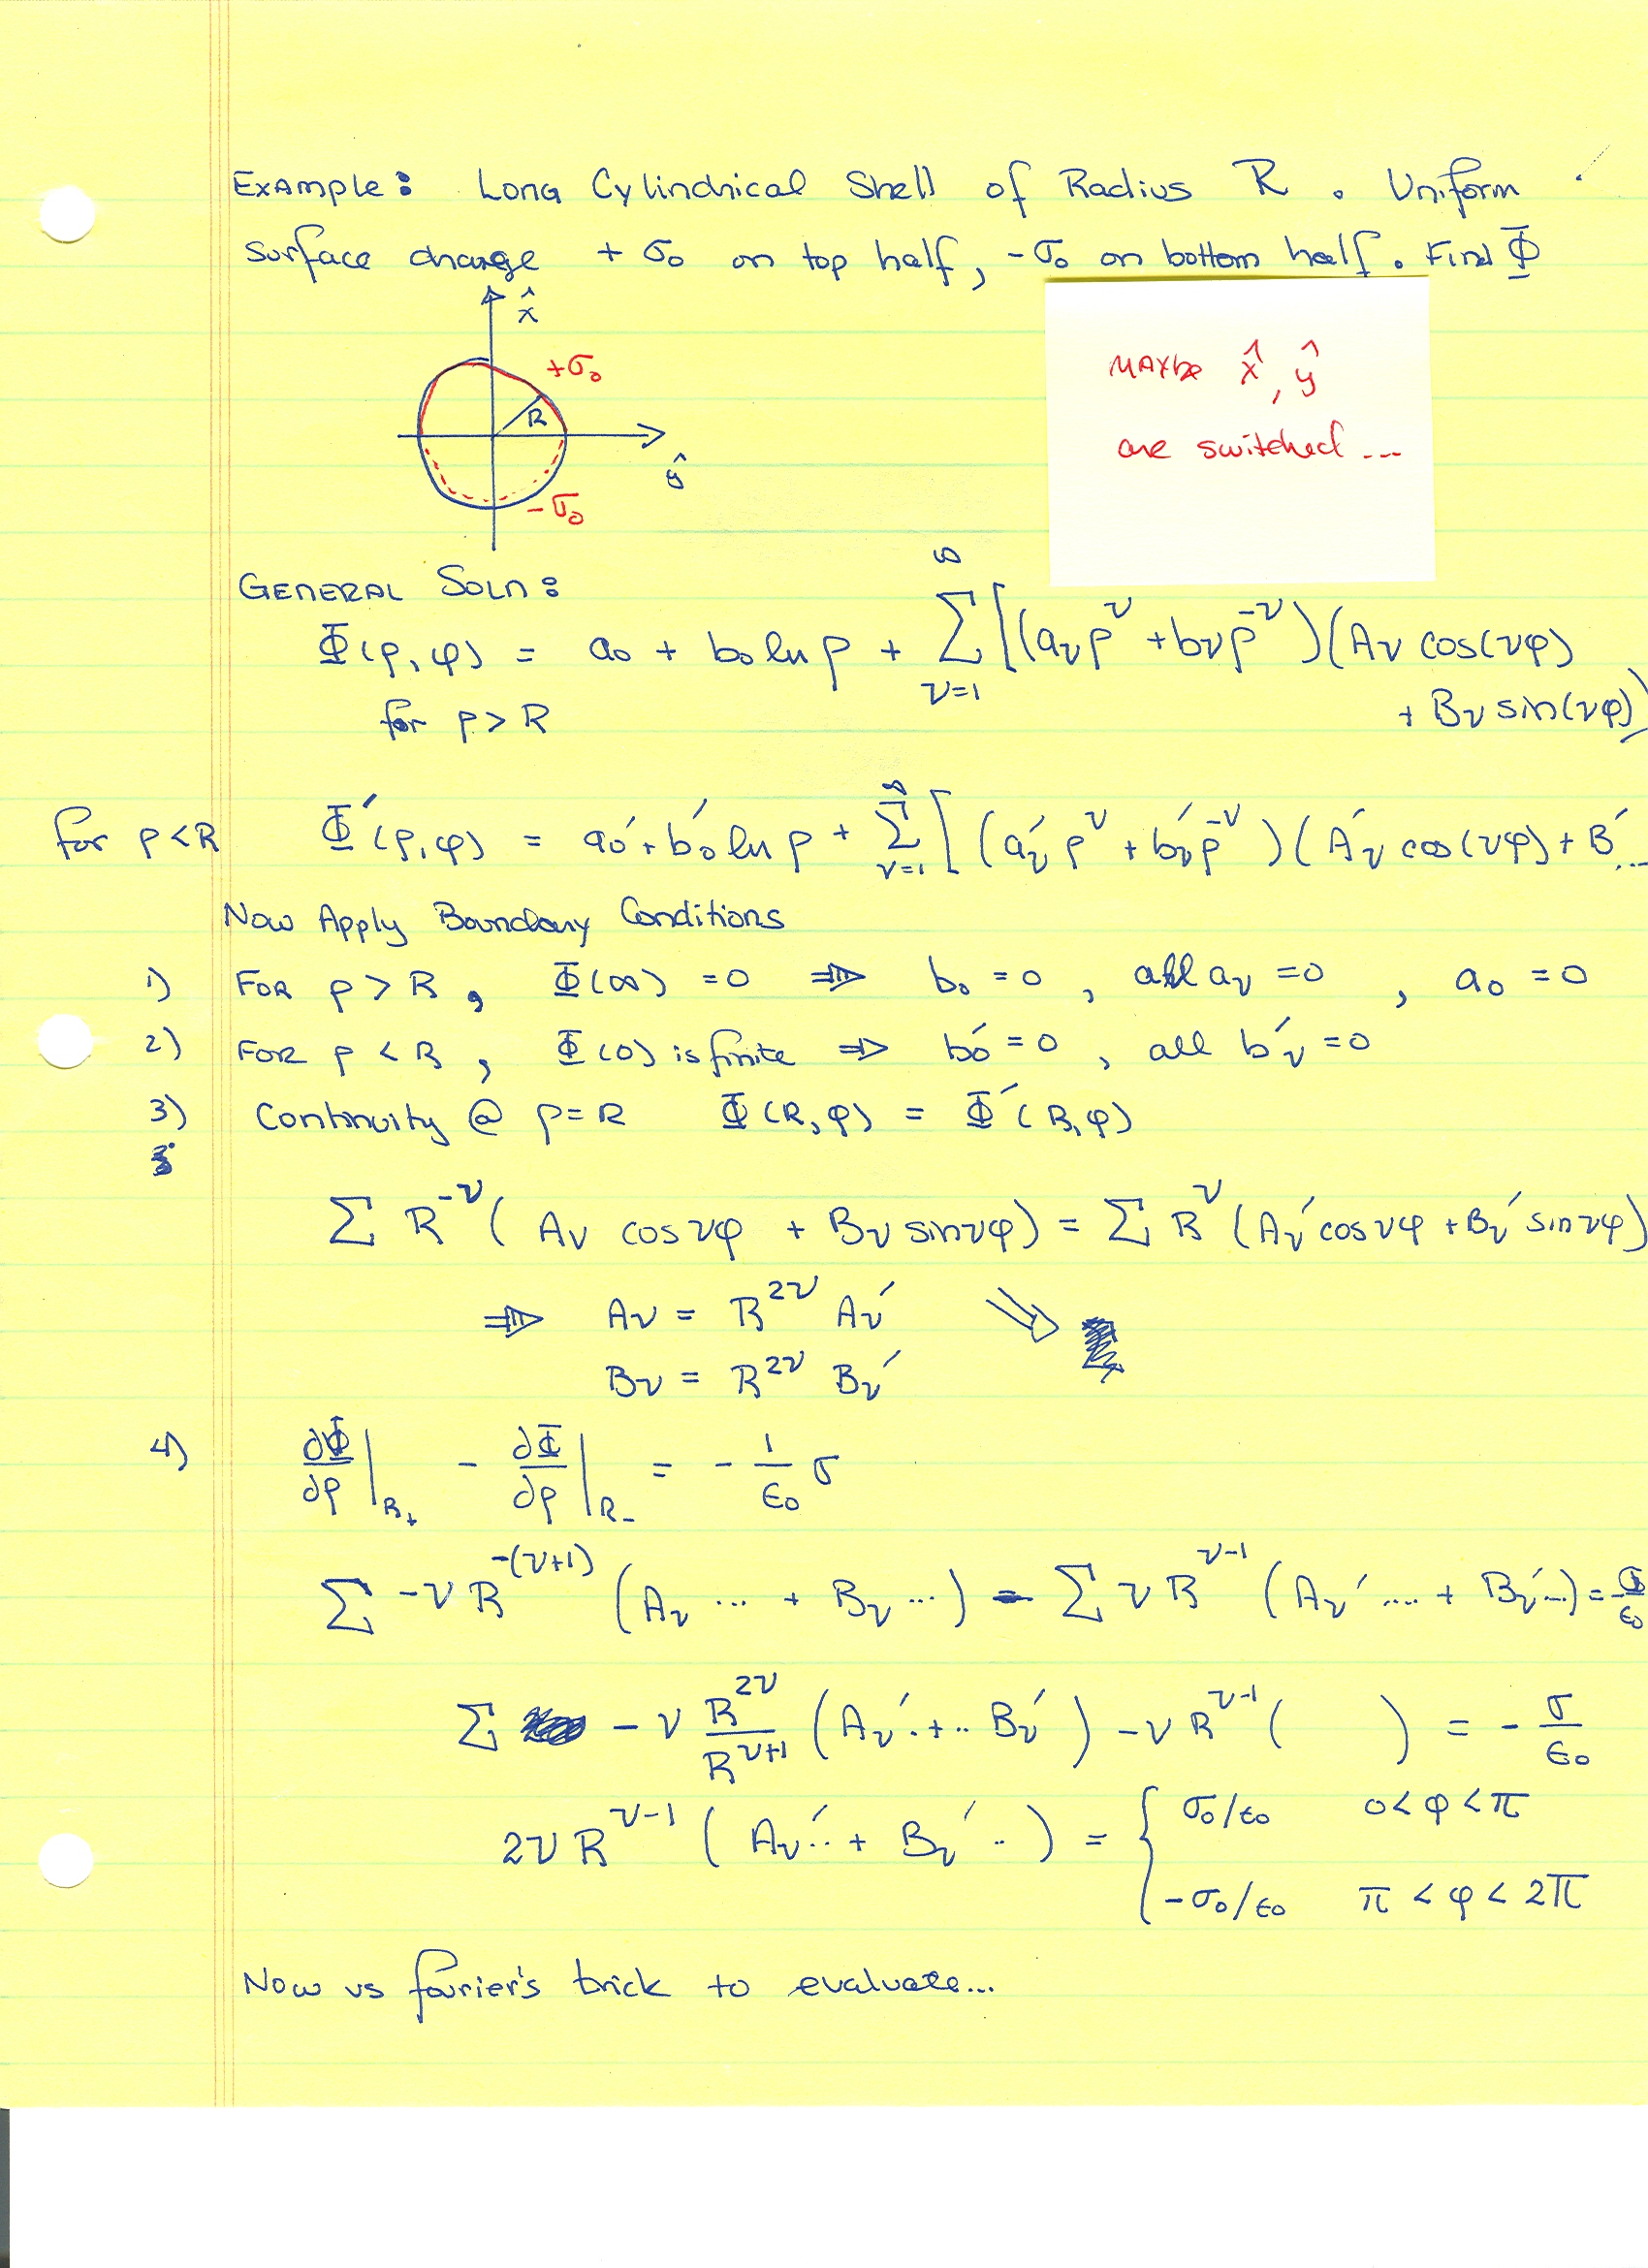 Example: Long Cylindrical Shell of Radius R. Uniform
surface charge + σ₀ on top half, -σ₀ on bottom half. Find Φ
x̂
+σ₀
R
ŷ
-σ₀
Maybe x̂, ŷ
are switched ...
General Soln:
Φ(ρ,φ) = a₀ + b₀ ln ρ + ∑_{ν=1}^{∞} [(a_ν ρ^ν + b_ν ρ^{-ν})(A_ν cos(νφ)
+ B_ν sin(νφ))
for ρ > R
for ρ < R Φ´(ρ,φ) = a₀´ + b₀´ ln ρ + ∑_{ν=1}^{∞} [(a_ν´ ρ^ν + b_ν´ ρ^{-ν})(A_ν´ cos(νφ) + B´...
Now Apply Boundary Conditions
1) For ρ > R, Φ(∞) = 0 ⇒ b₀ = 0, all a_ν = 0, a₀ = 0
2) For ρ < R, Φ(0) is finite ⇒ b₀´ = 0, all b_ν´ = 0
3) Continuity @ ρ = R Φ(R,φ) = Φ´(R,φ)
∑ R^{-ν} (A_ν cos νφ + B_ν sin νφ) = ∑ R^ν (A_ν´ cos νφ + B_ν´ sin νφ)
⇒ A_ν = R^{2ν} A_ν´
B_ν = R^{2ν} B_ν´
4) ∂Φ/∂ρ |_{R₊} - ∂Φ/∂ρ |_{R₋} = - 1/ε₀ σ
∑ -ν R^{-(ν+1)} (A_ν ... + B_ν ...) - ∑ ν R^{ν-1} (A_ν´ .... + B_ν´ ...) =
∑ -ν R^{2ν}/R^{ν+1} (A_ν´ .+.. B_ν´) - ν R^{ν-1} ( ) = - σ/ε₀
2ν R^{ν-1} (A_ν´.. + B_ν´ ..) = { σ₀/ε₀ 0 < φ < π
-σ₀/ε₀ π < φ < 2π
Now us fourier's trick to evaluate...